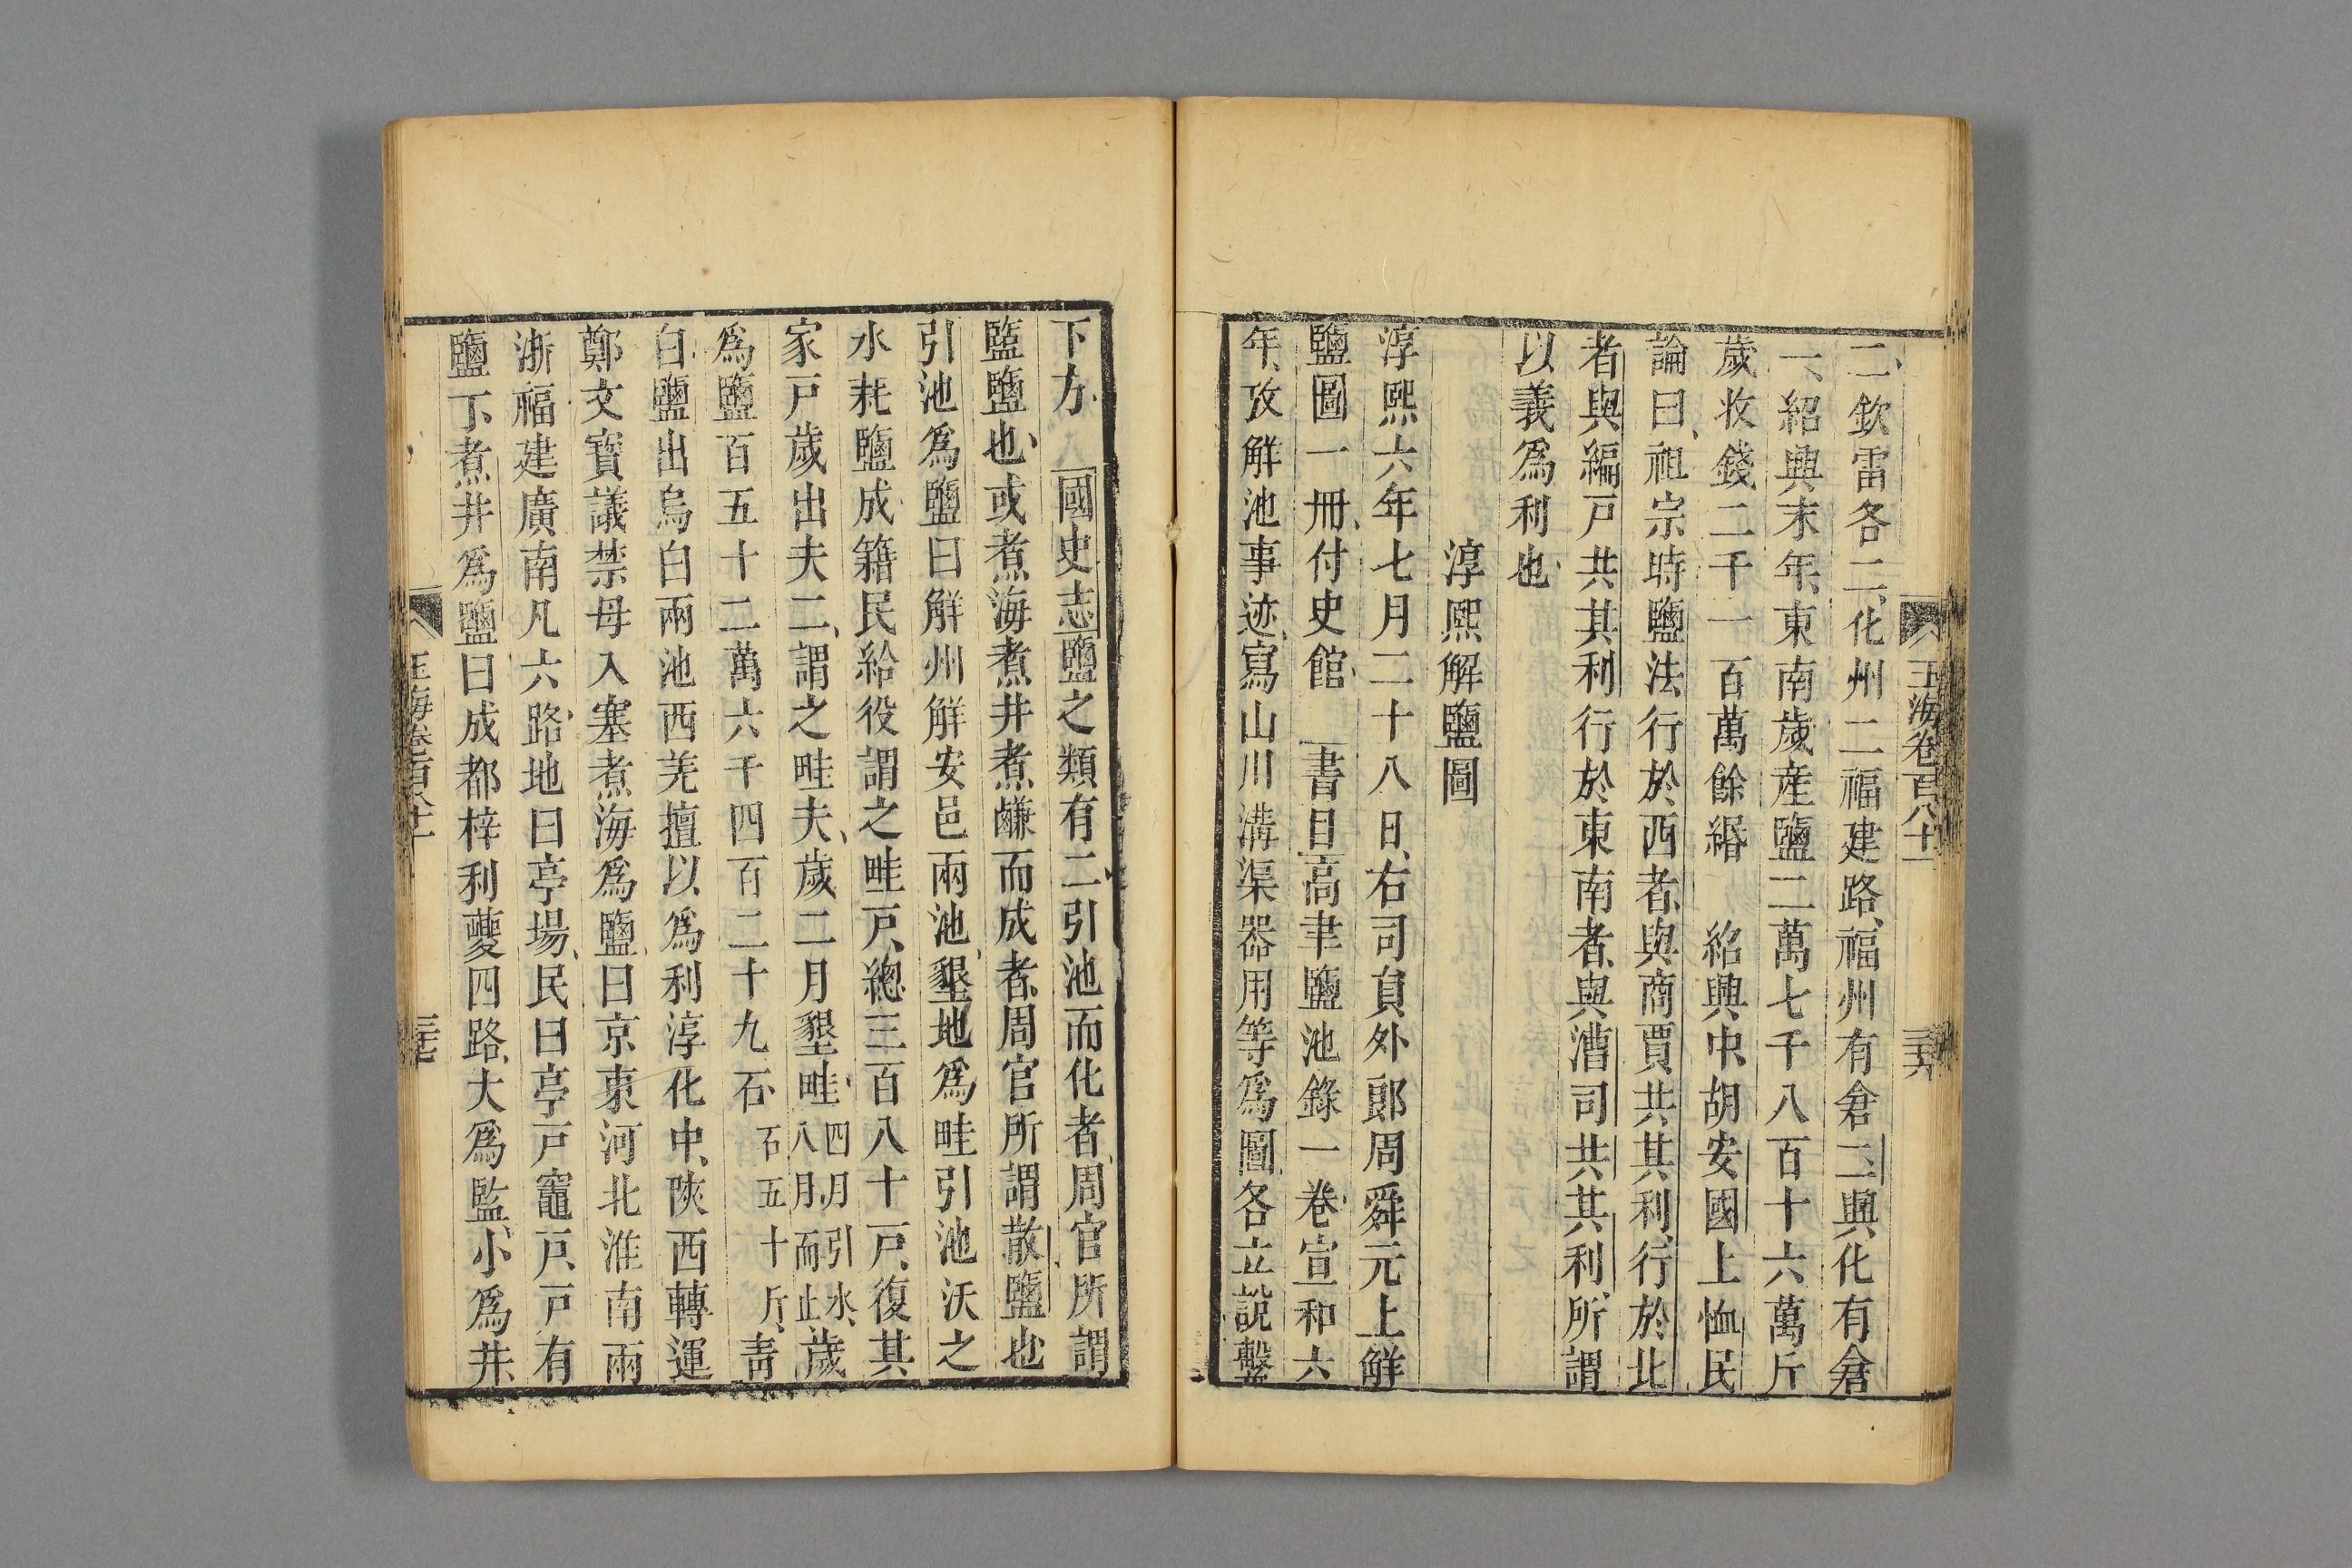 玉海卷百八十一
三六
二欽雷各二化州二福建路福州有倉二興化有倉
一紹興末年東南歲產鹽二萬七千八百十六萬斤
歲收錢二千一百萬餘緡 紹興中胡安國上恤民
論曰祖宗時鹽法行於西者與商賈共其利行於北
者與編戸共其利行於東南者與漕司共其利所謂
以義爲利也
淳熙解鹽圖
淳熙六年七月二十八日右司貟外郎周舜元上解
鹽圖一冊付史館 書目高聿鹽池錄一卷宣和六
年攷解池事迹寫山川溝渠器用等爲圖各立說繫
下方 國史志鹽之類有二引池而化者周官所謂
盬鹽也或煮海煮井煮鹻而成者周官所謂散鹽也
引池爲鹽曰解州解安邑兩池墾地爲畦引池沃之
水耗鹽成籍民給役謂之畦戸總三百八十戸復其
家戸歲出夫二謂之畦夫歲二月墾畦四月引水八月而止歲
爲鹽百五十二萬六千四百二十九石石五十斤靑
白鹽出烏白兩池西羌擅以爲利淳化中陝西轉運
鄭文寶議禁毋入塞煮海爲鹽曰京東河北淮南兩
浙福建廣南凡六路地曰亭場民曰亭戸竈戸戸有
鹽丁煮井爲鹽曰成都梓利夔四路大爲監小爲井
玉海卷百八十一
三七